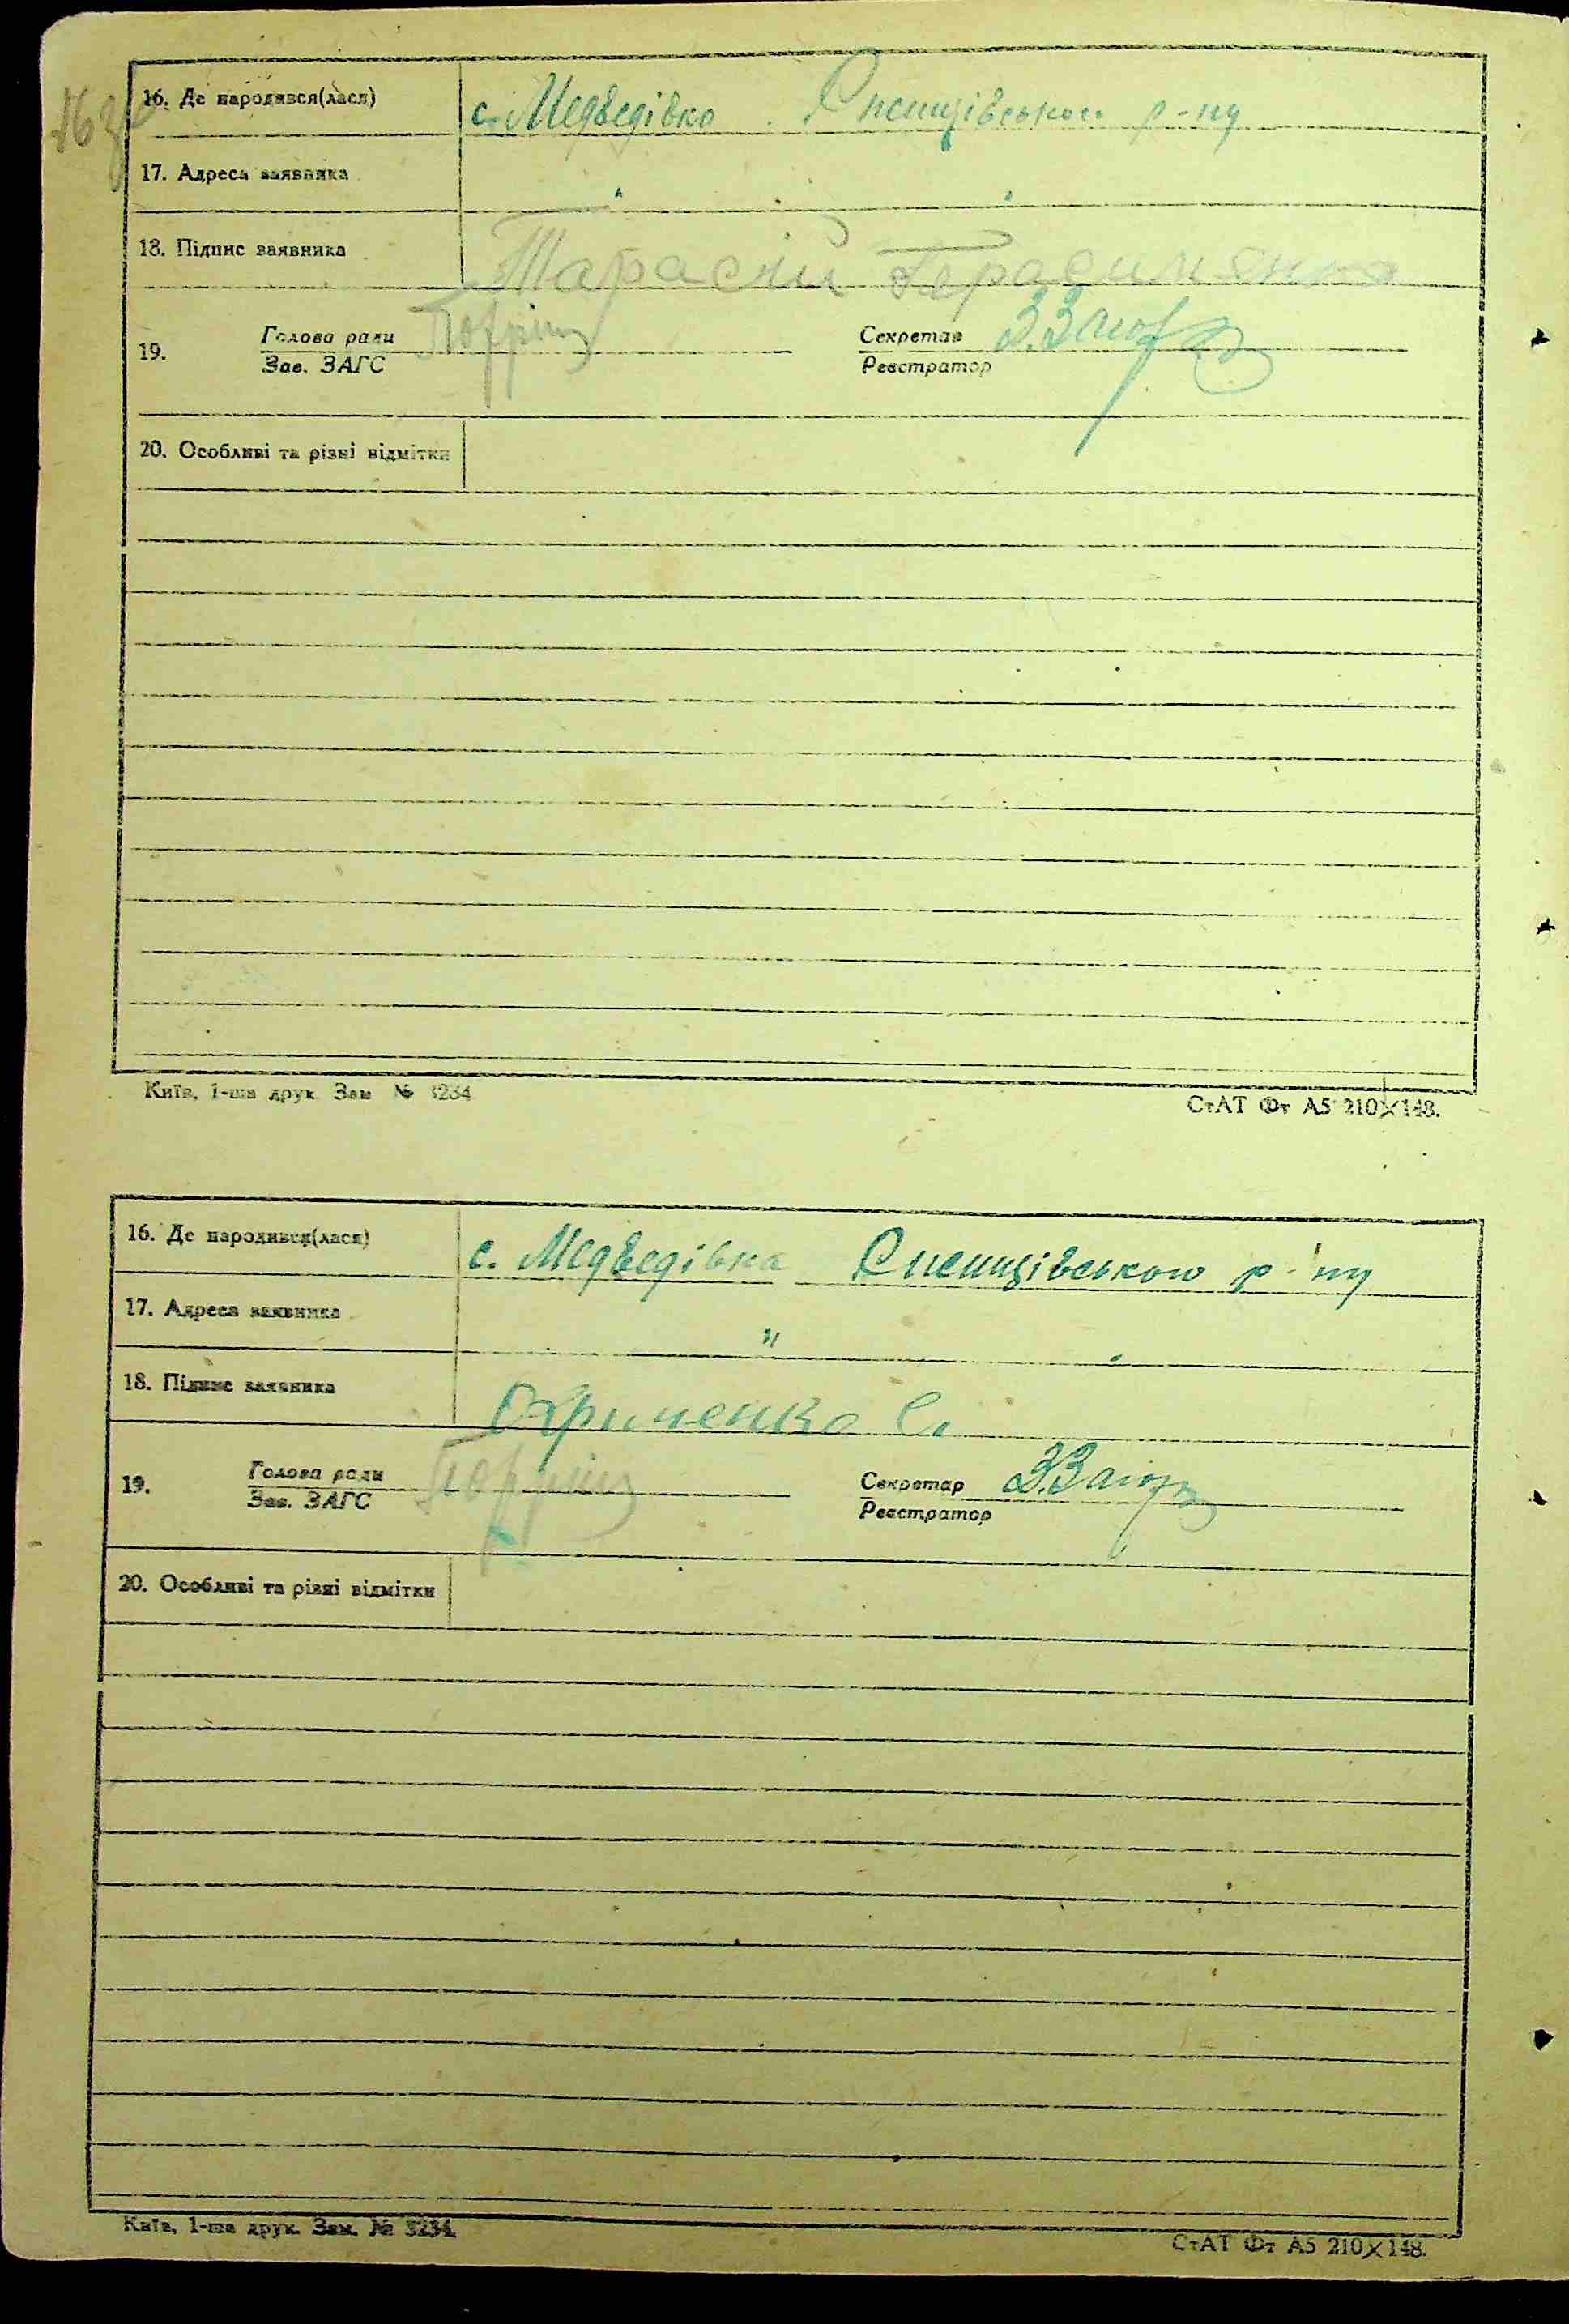 16. Де народився(лася) с. Медведівка
р-ну
17. Адреса заявника " "
18. Підпис заявника Тарасій Герасименко
19. Голова ради Секретар З.
Зав. ЗАГС Реєстратор
20. Особливі та різні відмітки
Київ, 1-ша друк. Зам № 3234
СтАТ Фт А5 210×148.
16. Де народився(лася) с. Медведівка р-ну
17. Адреса заявника " "
18. Підпис заявника Охрименко С.
19. Голова ради Секретар З.
Зав. ЗАГС Реєстратор
20. Особливі та різні відмітки
Київ, 1-ша друк. Зам. № 3234.
СтАТ Фт А5 210×148.